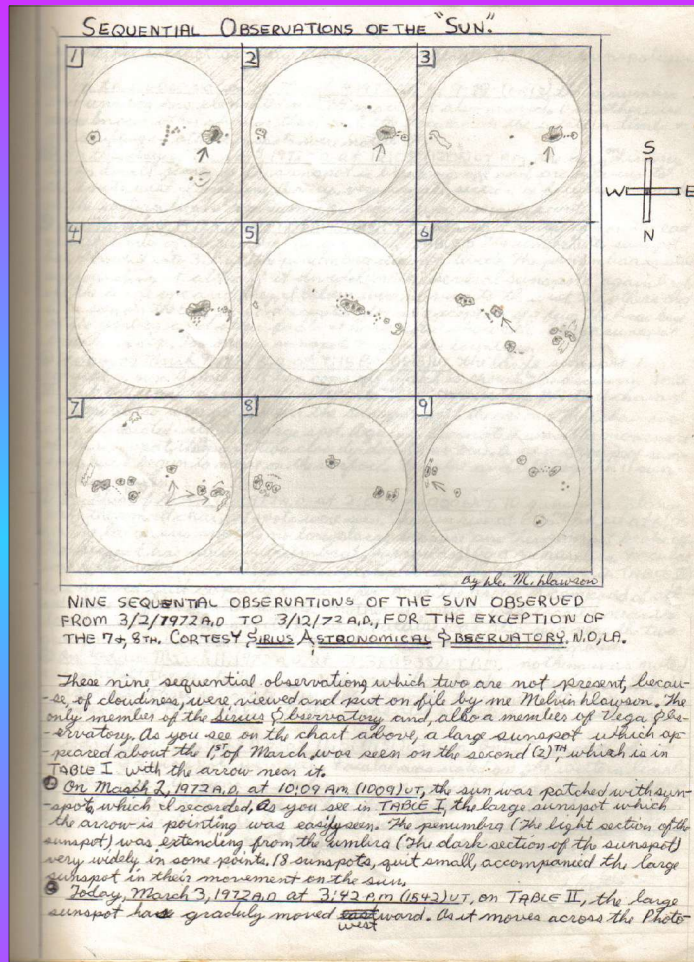 SEQUENTIAL OBSERVATIONS OF THE "SUN".
1 2 3
S
W E
N
4 5 6
7 8 9
By M. Hawson
NINE SEQUENTIAL OBSERVATIONS OF THE SUN OBSERVED
FROM 3/2/1972 A.D TO 3/12/72 A.D., FOR THE EXCEPTION OF
THE 7th, 8TH. CORTESY SIRIUS ASTRONOMICAL OBSERVATORY, N.O, LA.
These nine sequential observations, which two are not present, becau-
-se, of cloudiness, were viewed and put on file by me Melvin Hawson. The
only member of the Sirius Observatory and, also a member of Vega Obs-
-ervatory. As you see on the chart above, a large sunspot which ap-
-peared about the 1st of March, was seen on the second (2)TH, which is in
TABLE I with the arrow near it.
① On March 2, 1972 A.D, at 10:09 A.M (1009) UT, the sun was patched with sun-
-spots, which I recorded, As you see in TABLE I, the large sunspot which
the arrow is pointing was easily seen. The penumbra (The light section of the
sunspot) was extending from the umbra (The dark section of the sunspot)
very widely in some points. 18 sunspots, quit small, accompanied the large
sunspot in their movement on the sun.
② Today, March 3, 1972 A.D at 3:42 P.M (1542) UT, on TABLE II, the large
sunspot has graduly moved east ward. As it moves across the Photo-
west